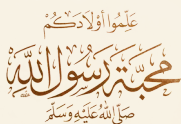 عَلِّمُوا أَوْلَادَكُمْ
مَحَبَّةَ رَسُولِ اللَّهِ
صَلَّى اللَّهُ عَلَيْهِ وَسَلَّمَ